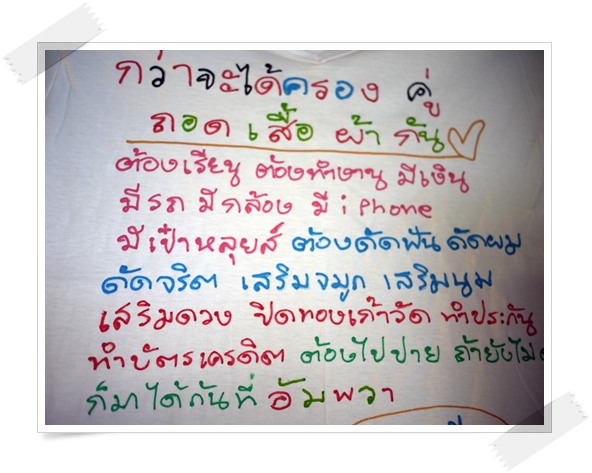 กว่าจะได้ครอง คู่
ถอด เสื้อ ผ้า กัน
ต้องเรียน ต้องทำงาน มีเงิน
มีรถ มีกล้อง มี i Phone
มีเป๋าหลุยส์ ต้องดัดฟัน ดัดผม
ดัดจริต เสริมจมูก เสริมนม
เสริมดวง ปิดทองเก้าวัด ทำประกัน
ทำบัตรเครดิต ต้องไปปาย ถ้ายังไม่
ก็มาได้กันที่ อัมพวา